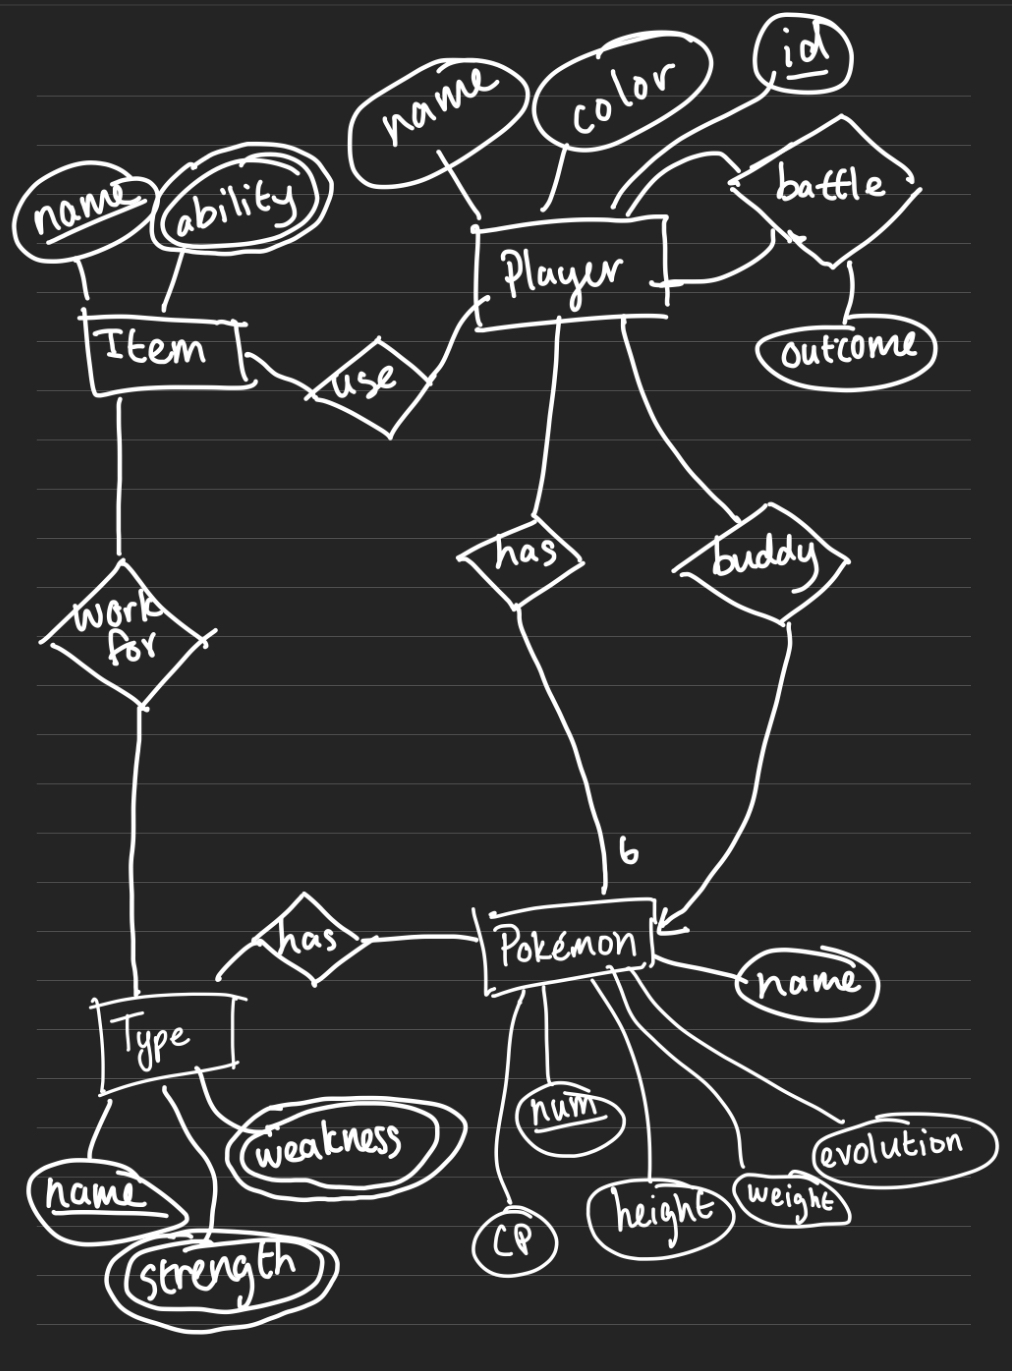 id
name
color
battle
name
ability
Player
Item
use
outcome
has
buddy
work
for
6
has
Pokémon
name
Type
num
weakness
evolution
name
height
weight
CP
strength